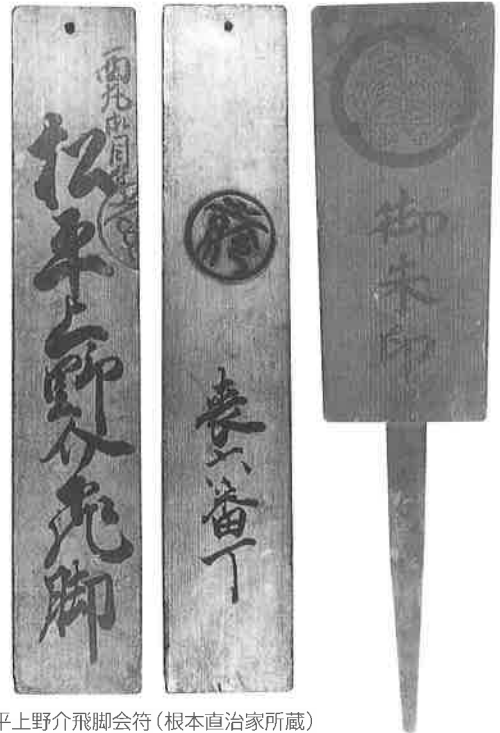 松平上野介飛脚
表六番丁
御朱印
平上野介飛脚会符（根本直治家所蔵）